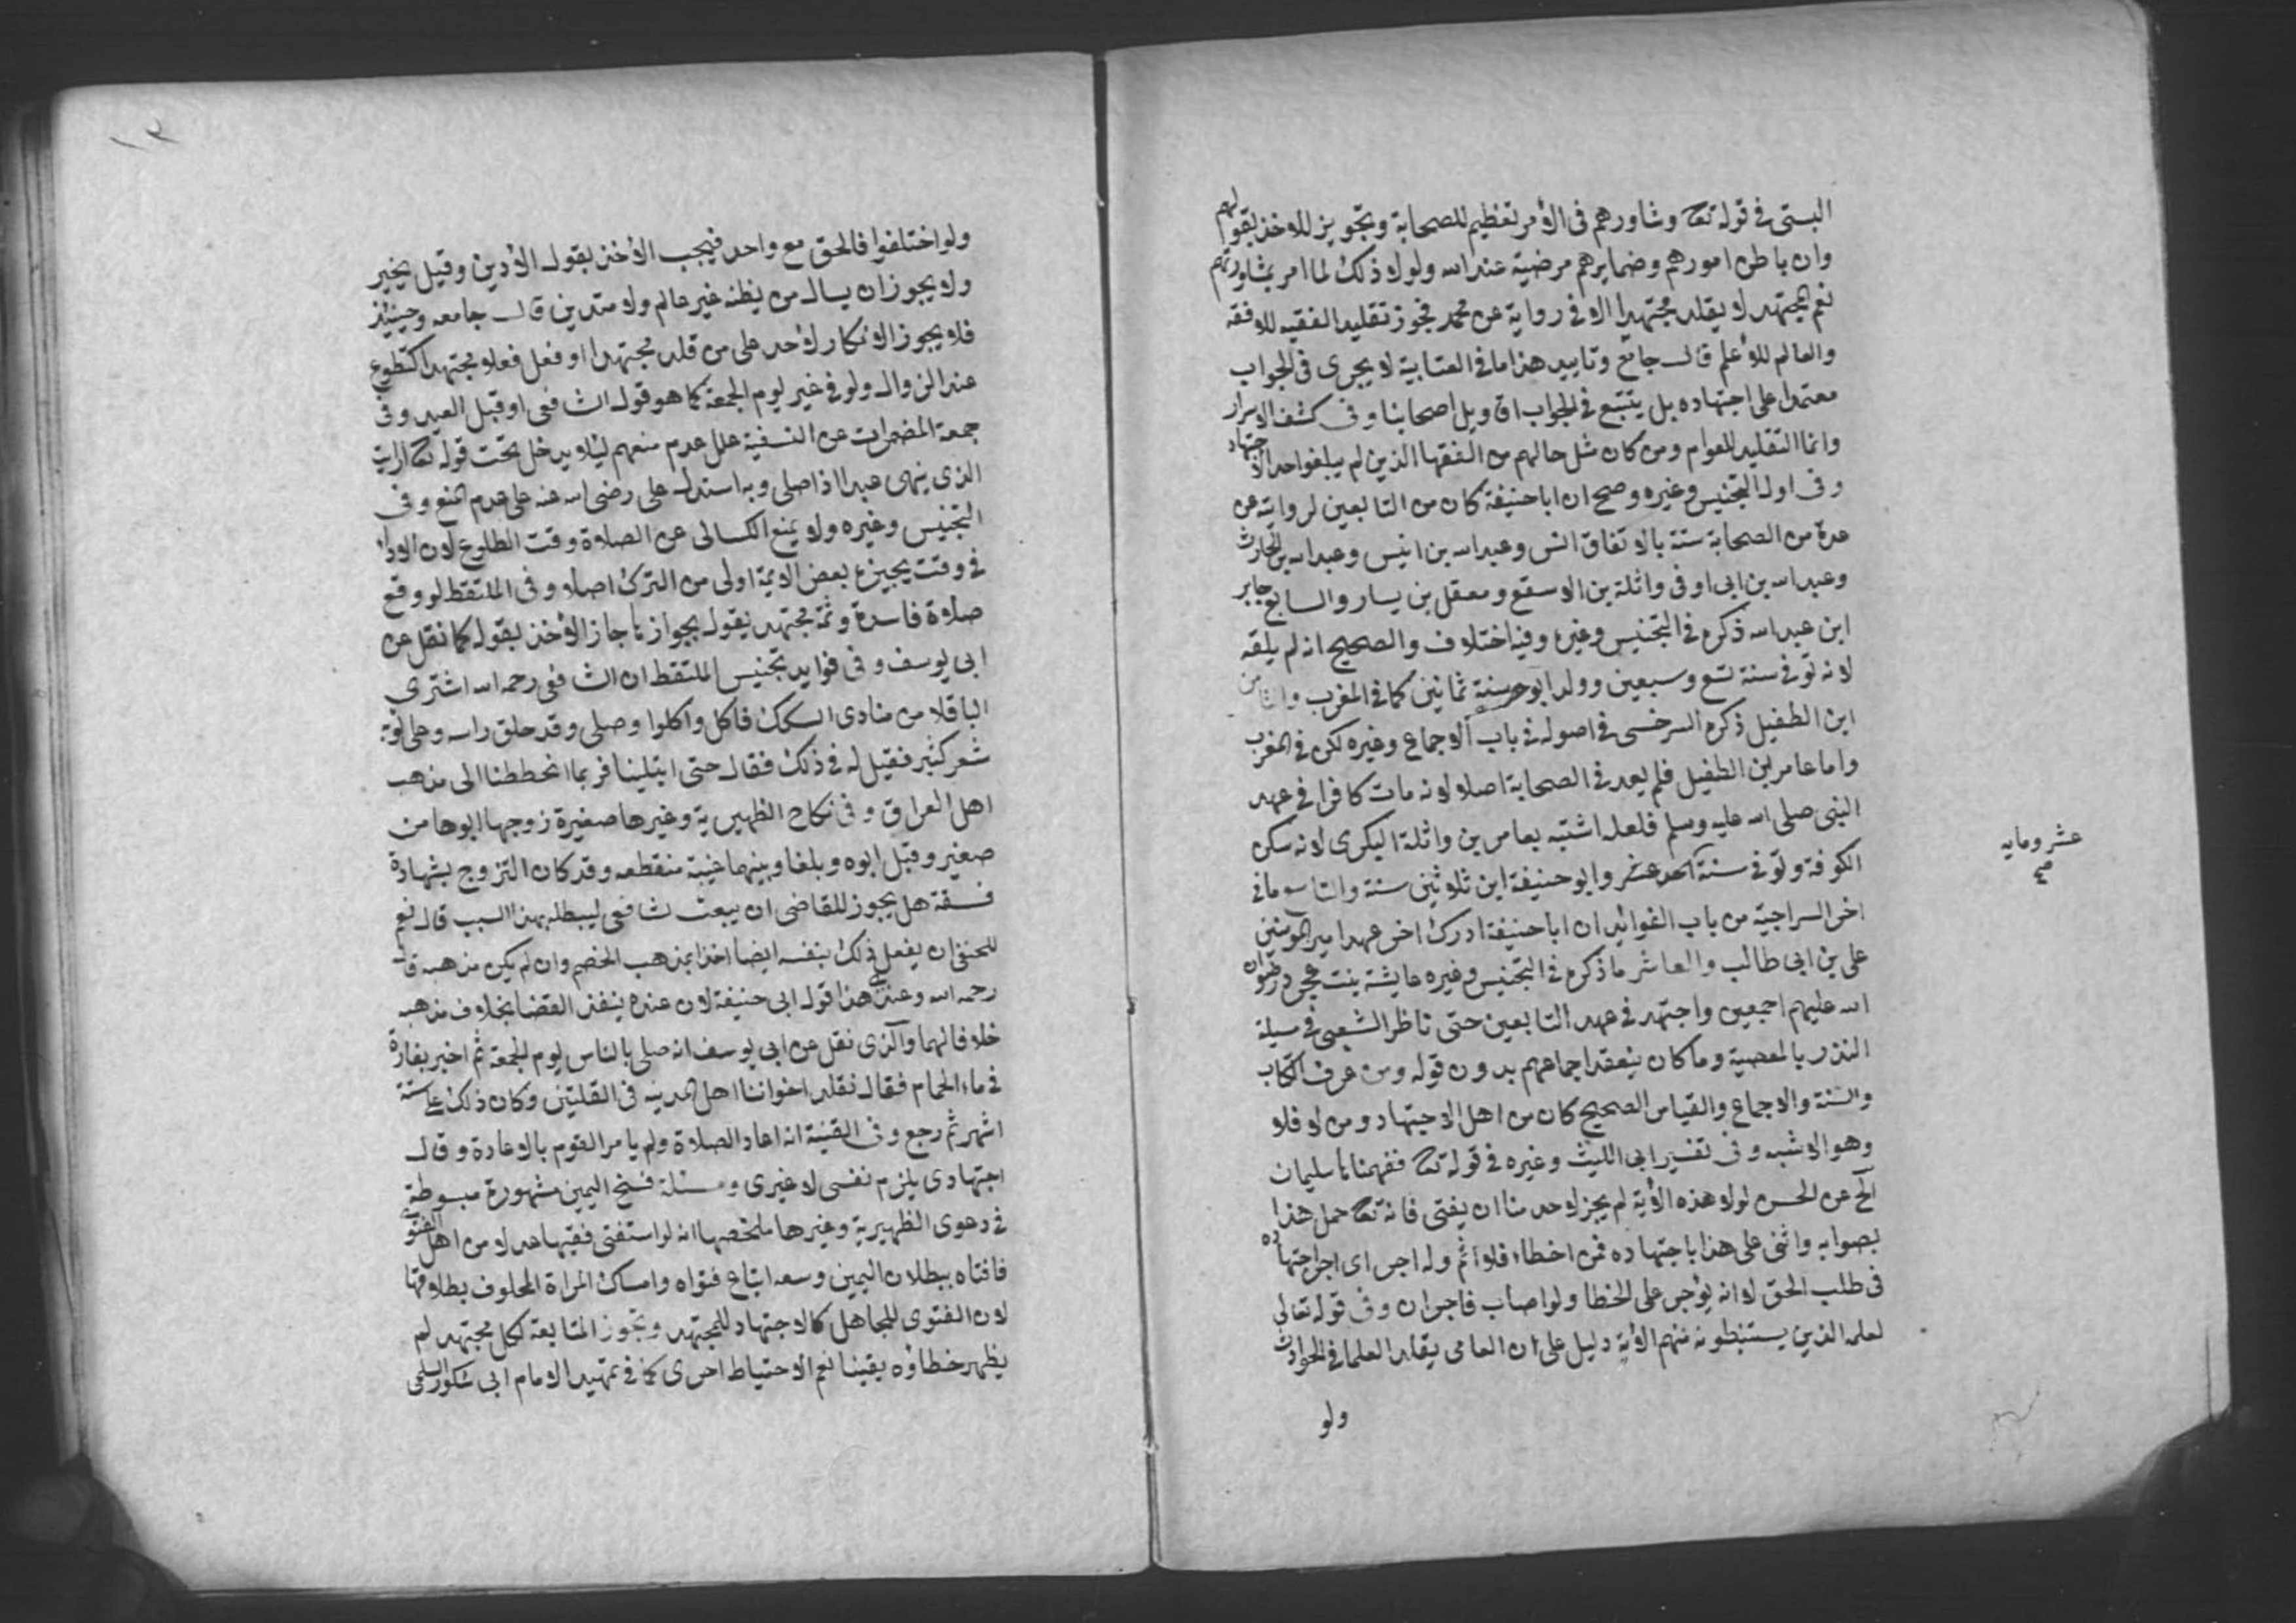 البستى فى قوله تعا وشاورهم فى الأمر تعظيم للصحابة وتجويز للاخذ بقولهم
وان باطن امورهم وضمايرهم مرضية عند الله ولولا ذلك لما امر بمشاورتهم
نعم المجتهد لا يقلد مجتهدا الا فى رواية عن محمد فجوز تقليد الفقيه للافقه
والعالم للأعلم قال جامع وتاييد هذا ما فى العتابية لا يجرى فى الجواب
معتمدا على اجتهاده بل يتتبع فى الجواب اقاويل اصحابنا وفى كشف الاسرار
وانما التقليد للعوام ومن كان مثل حالهم من الفقها الذين لم يبلغوا حد الاجتهاد
وفى اول التجنيس وغيره وصح ان ابا حنيفة كان من التابعين لروايته عن
عدة من الصحابة ستة بالاتفاق انس وعبد الله بن انيس وعبد الله بن الحارث
وعبد الله بن ابى اوفى واثلة بن الاسقع ومعقل بن يسار والسابع جابر
ابن عبد الله ذكره فى التجنيس وغيره وفيه اختلاف والصحيح انه لم يلقه
لانه توفى سنة تسع وسبعين وولد ابو ح سنة ثمانين كما فى المغرب والثامن
ابن الطفيل ذكره السرخسى فى اصوله فى باب الاجماع وغيره لكن فى المغرب
واما عامر بن الطفيل فلم يعد فى الصحابة اصلا لانه مات كافرا فى عهد
النبى صلى الله عليه وسلم فلعله اشتبه بعامر بن واثلة البكرى لانه سكن
الكوفة وتوفى سنة احد عشر وابو حنيفة ابن ثلاثين سنة والتاسع ما فى
عشر ومايه
صح
اخر السراجية من باب الفوائد ان ابا حنيفة ادرك اخر عهد امير المومنين
على بن ابى طالب والعاشر ما ذكره فى التجنيس وغيره عايشة بنت عجرد رضوان
الله عليهم اجمعين واجتهد فى عهد التابعين حتى ناظر الشعبى فى مسيلة
النذر بالمعصية وما كان ينعقد اجماعهم بدون قوله ومن عرف الكتاب
والسنة والاجماع والقياس الصحيح كان من اهل الاجتهاد ومن لا فلا
وهو الاشبه وفى تفسير ابى الليث وغيره فى قوله تعا ففهمناها سليمان
الخ عن الحسن لولا هذه الأية لم يجز لاحد منا ان يفتى فانه تعا حمل هذا
بصوابه واثنى على هذا باجتهاده فمن اخطاء فلا اثم وله اجر اى اجر اجتهاده
فى طلب الحق لا انه يؤجر على الخطا ولو اصاب فاجران وفى قوله تعالى
لعلمه الذين يستنبطونه منهم الأية دليل على ان العامى يقلد العلما فى الحوادث
ولو
١٢
ولو اختلفوا فالحق مع واحد فيجب الأخذ بقول الأدين وقيل يخير
ولا يجوز ان يسال من يظنه غير عالم ولا متدين قال جامعه وحينيذ
فلا يجوز الانكار لأحد على من قلد مجتهدا او فعل فعلا مجتهدا كتطوع
عند الزوال ولو فى غير يوم الجمعة كما هو قول الشافعى او قبل العيد وفى
جمعة المضمرات عن النسفية علل عدم منعهم ليلا يدخل تحت قوله تعا ارايت
الذى ينهى عبدا اذا صلى وبه استدل على رضى الله عنه على عدم المنع وفى
التجنيس وغيره ولا يمنع الكسالى عن الصلاة وقت الطلوع لان الاداء
فى وقت يجيزه بعض الايمة اولى من الترك اصلا وفى الملتقط لو وقع
صلاة فاسدة وثمة مجتهد يقول بجوازها جاز الأخذ بقوله كما نقل عن
ابى يوسف وفى فوايد تجنيس الملتقط ان الشافعى رحمه الله اشترى
الباقلا من منادى السكك فاكل واكلوا وصلى وقد حلق راسه وعلى ثوبه
شعر كثير فقيل له فى ذلك فقال حتى ابتلينا فربما انحططنا الى مذهب
اهل العراق وفى نكاح الظهيرية وغيرها صغيرة زوجها ابوها من
صغير وقبل ابوه وبلغا وبينهما غيبة منقطعه وقد كان التزوج بشهادة
فسقة هل يجوز للقاضى ان يبعث لشافعى ليبطله بهذا السبب قال نعم
للحنفى ان يفعل ذلك بنفسه ايضا اخذا بمذهب الخصم وان لم يكن مذهبه قال
رحمه الله وعندى هذا قول ابى حنيفة لان عنده ينفذ القضا بخلاف مذهبه
خلافا لهما والذى نقل عن ابى يوسف انه صلى بالناس يوم الجمعة ثم اخبر بفارة
فى ماء الحمام فقال نقلد اخواننا اهل المدينه فى القلتين وكان ذلك على ستة
اشهر ثم رجع وفى القنية انه اعاد الصلاة ولم يامر القوم بالاعادة وقال
اجتهادى يلزم نفسى لا غيرى ومسئلة فسخ اليمين مشهورة مبسوطة
فى دعوى الظهيرية وغيرها ملخصها انه لو استفتى فقيها عدلا من اهل الفتوى
فافتاه ببطلان اليمين وسعه اتباع فتواه وامساك المراة المحلوف بطلاقها
لان الفتوى للجاهل كالاجتهاد للمجتهد وتجوز المتابعة لكل مجتهد لم
يظهر خطاؤه يقينا نعم الاحتياط احرى كما فى تمهيد الامام ابى شكور السلمى